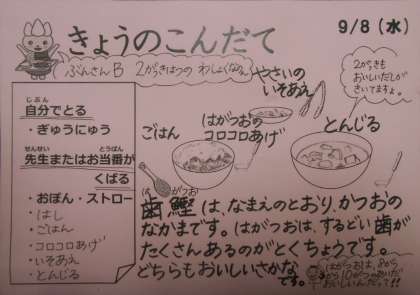 きょうのこんだて
9/8（水）
ぶんさんB 2がっきはつの わしょくなのだ
2がっきも
おいしいだしが
きいてますよ。
やさいの
いそあえ
はがつおの
コロコロあげ
ごはん
とんじる
自分でとる
じぶん
・ぎゅうにゅう
先生またはお当番が
せんせい とうばん
くばる
・おぼん・ストロー
・はし
・ごはん
・コロコロあげ
・いそあえ
・とんじる
歯鰹は、なまえのとおり、かつおの
は がつお
なかまです。はがつおは、するどい歯が
たくさんあるのがとくちょうです。
どちらもおいしいさかな
です。
はがつおは、8から
から10がつのあいだが
おいしいんだって!!